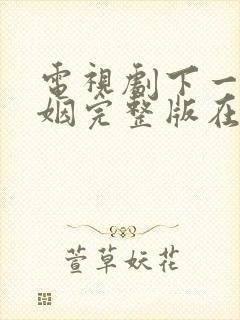 電視劇下一
姻完整版在
萱草妖花